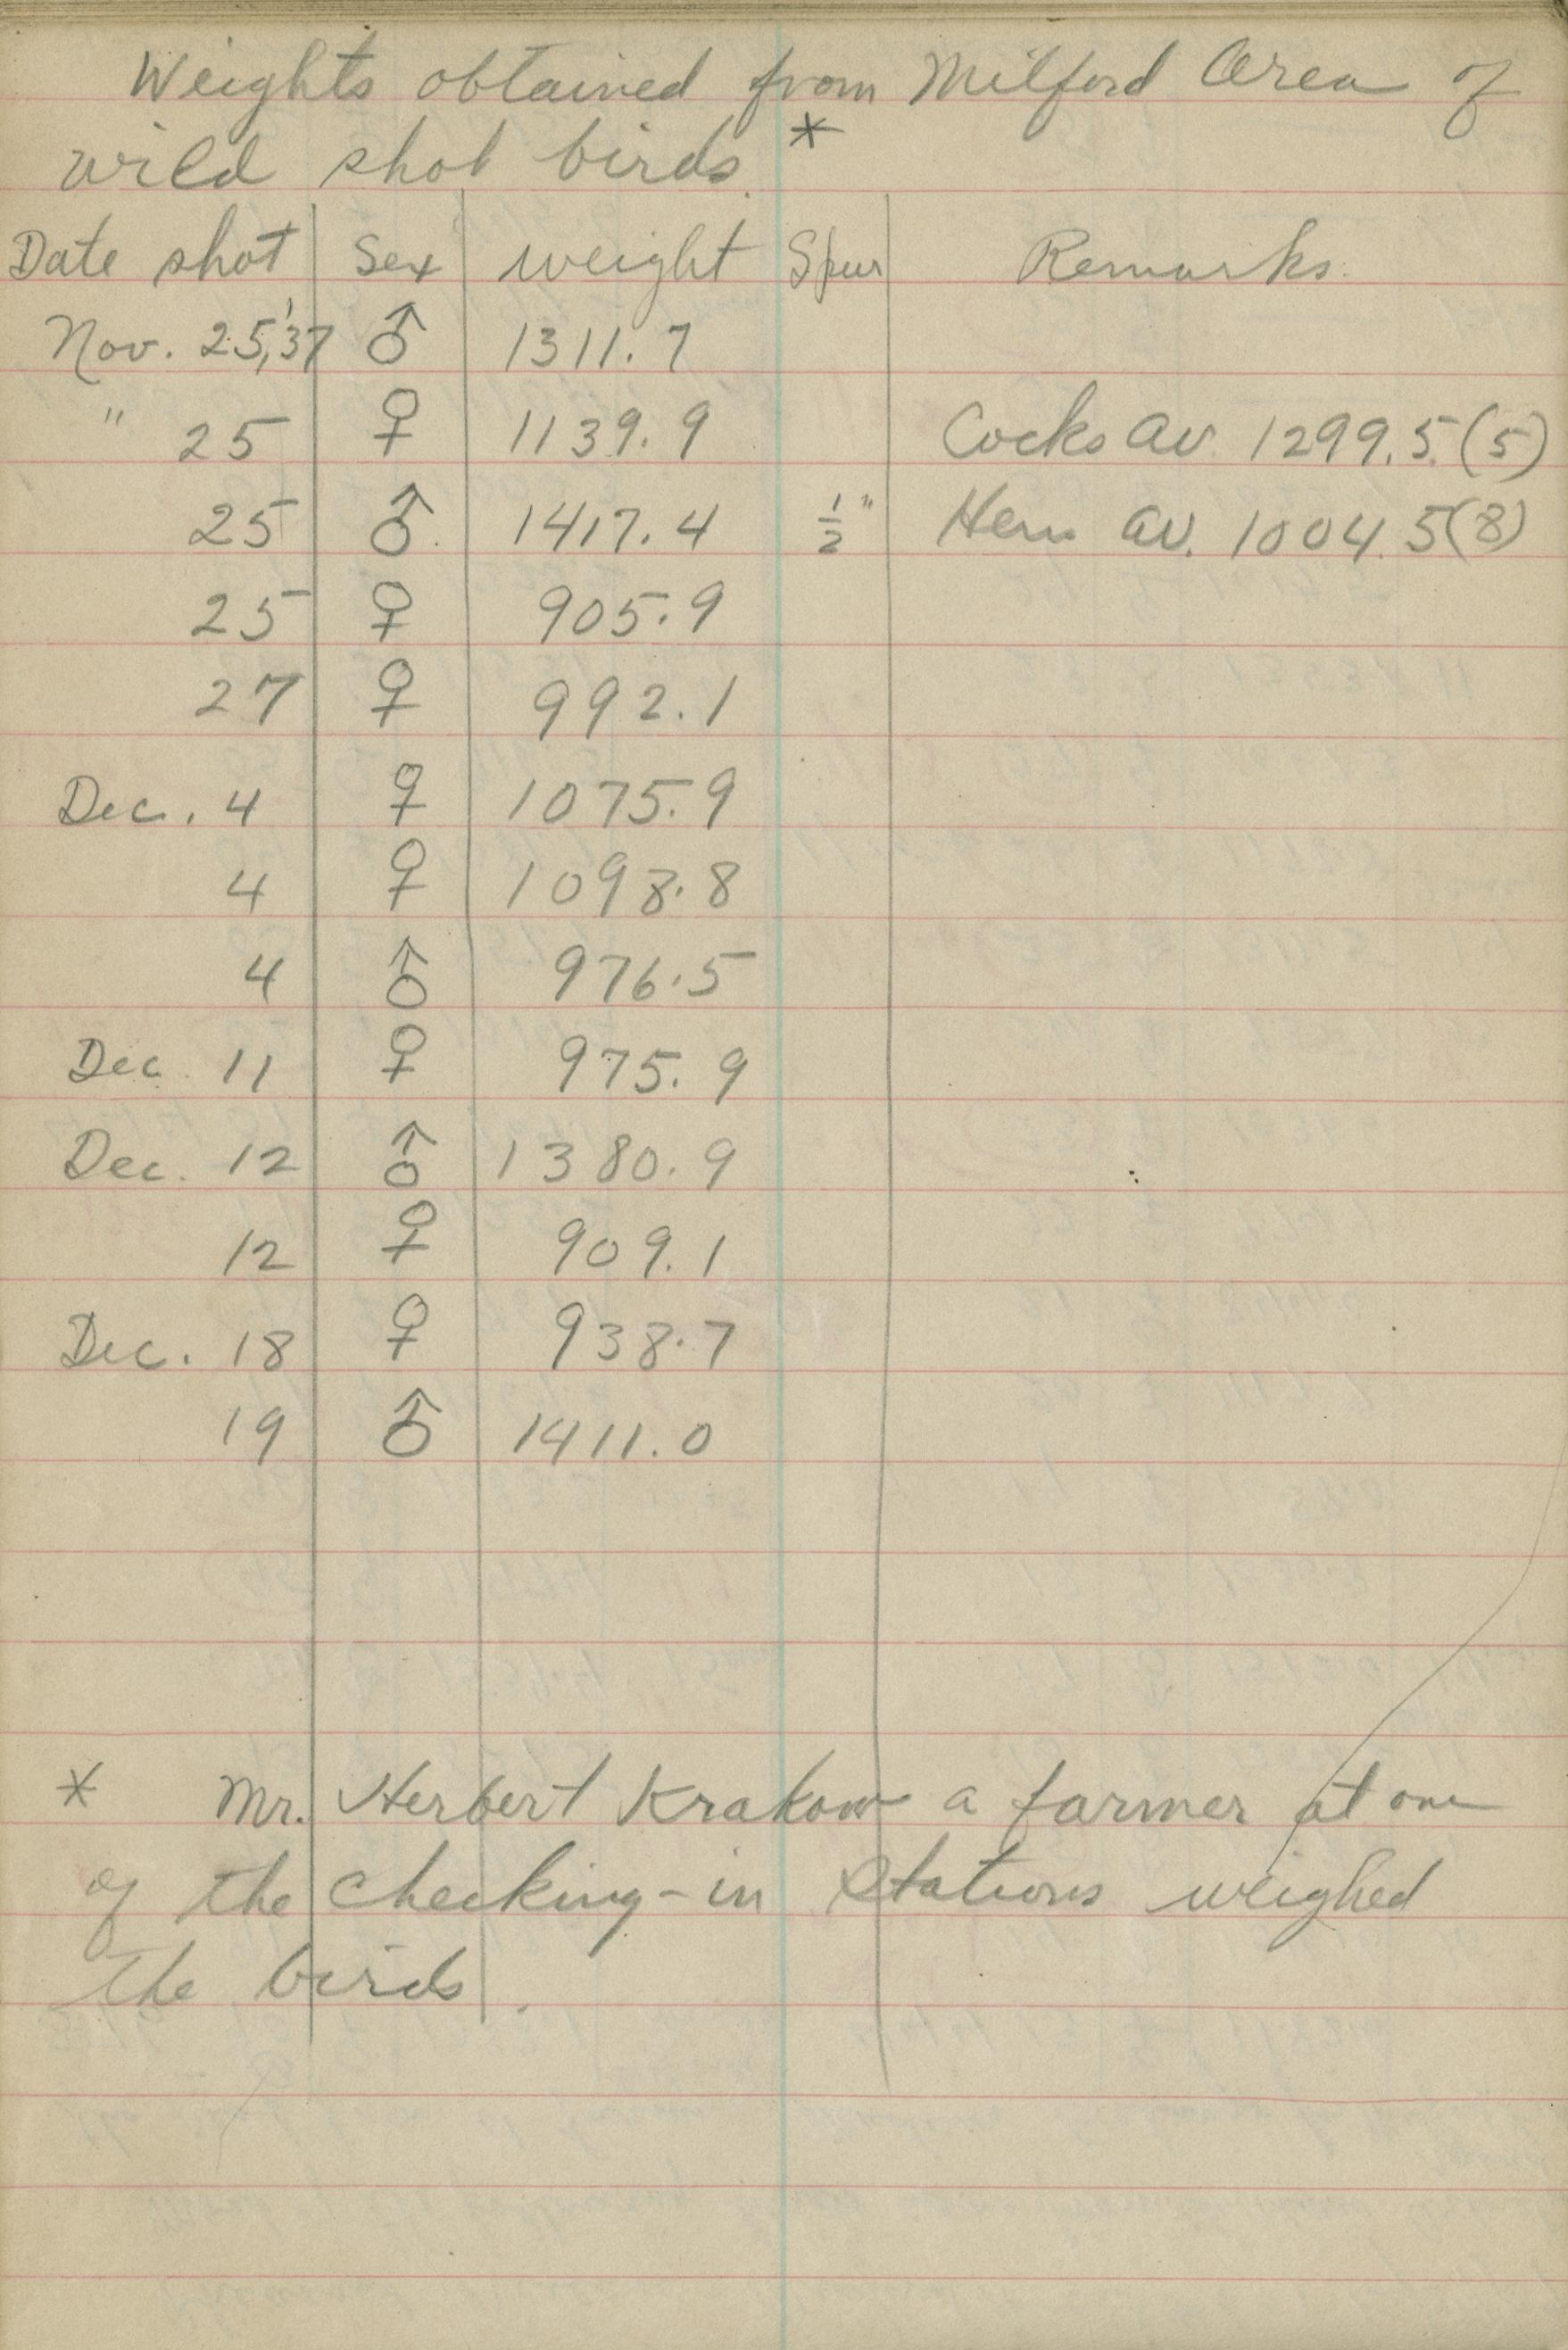 Weights obtained from Milford Area of
wild shot birds. *
Date shot Sex weight Spur Remarks.
Nov. 25,'37 ♂ 1311.7
" 25 ♀ 1139.9 Cocks av. 1299.5 (5)
25 ♂ 1417.4 1/2" Hens av. 1004.5 (8)
25 ♀ 905.9
27 ♀ 992.1
Dec. 4 ♀ 1075.9
4 ♀ 1098.8
4 ♂ 976.5
Dec. 11 ♀ 975.9
Dec. 12 ♂ 1380.9
12 ♀ 909.1
Dec. 18 ♀ 938.7
19 ♂ 1411.0
* Mr. Herbert Krakow a farmer at one
of the checking-in stations weighed
the birds.